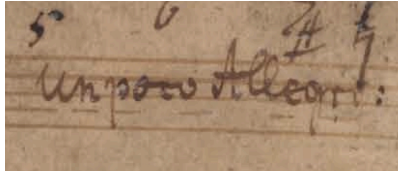 5 6 # 7
Un poco Allegro: